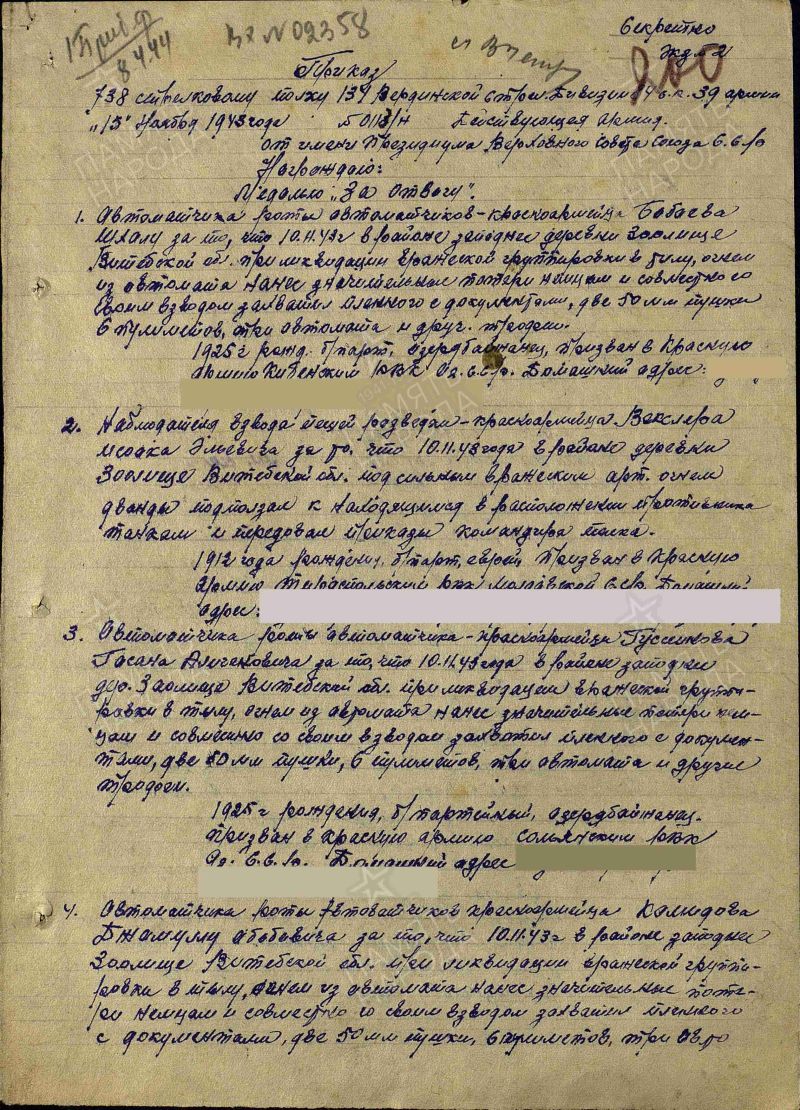 Вх № 02358
Секретно
Экз № 2
Приказ
738 стрелковому полку 139 Стрел. Дивизии 39 армии
"13" Ноября 1943 года № 0113/Н Действующая армия.
от имени Президиума Верховного Совета Союза С.С.Р.
Награждаю:
Медалью "За Отвагу".
1. Автоматчика роты автоматчиков - красноармейца Бабаева
за то, что 10.11.43г в районе западнее деревни Заолище
Витебской обл. при ликвидации вражеской группировки в тылу, огнем
из автомата нанес значительные потери немцам и совместно со
своим взводом захватил пленного с документами, две 50 мм пушки
6 пулеметов, три автомата и друг. трофеи.
1925 г рожд. б/парт, азербайджанец, призван в Красную
армию РВК Аз. С.С.Р. Домашний адрес:
2. Наблюдателя взвода пешей разведки - красноармейца Векслера
Исаака Эльевича за то, что 10.11.43 года в районе деревни
Заолище Витебской обл. под сильным вражеским арт. огнем
дважды подползал к находящимся в расположении противника
танкам и передавал приказы командира полка.
1912 года рождения, б/парт, еврей, призван в Красную
армию Тираспольским РВК Молдавской ССР. Домашний
адрес:
3. Автоматчика роты автоматчика - красноармейца Гуссейнова
Гасана за то, что 10.11.43 года в районе западнее
дер. Заолище Витебской обл. при ликвидации вражеской группи-
ровки в тылу, огнем из автомата нанес значительные потери нем-
цам и совместно со своим взводом захватил пленного с докумен-
тами, две 50 мм пушки, 6 пулеметов, три автомата и другие
трофеи.
1925 г рождения, б/партейный, азербайжанец.
Призван в Красную армию Сольянским РВК
Аз. С.С.Р. Домашний адрес
4. Автоматчика роты Автоматчиков красноармейца Хамидова
за то, что 10.11.43 г в районе западнее
Заолище Витебской обл. при ликвидации вражеской группи-
ровки в тылу, огнем из автомата нанес значительные поте-
ри немцам и совместно со своим взводом захватил пленного
с документами, две 50 мм пушки, 6 пулеметов, три авто